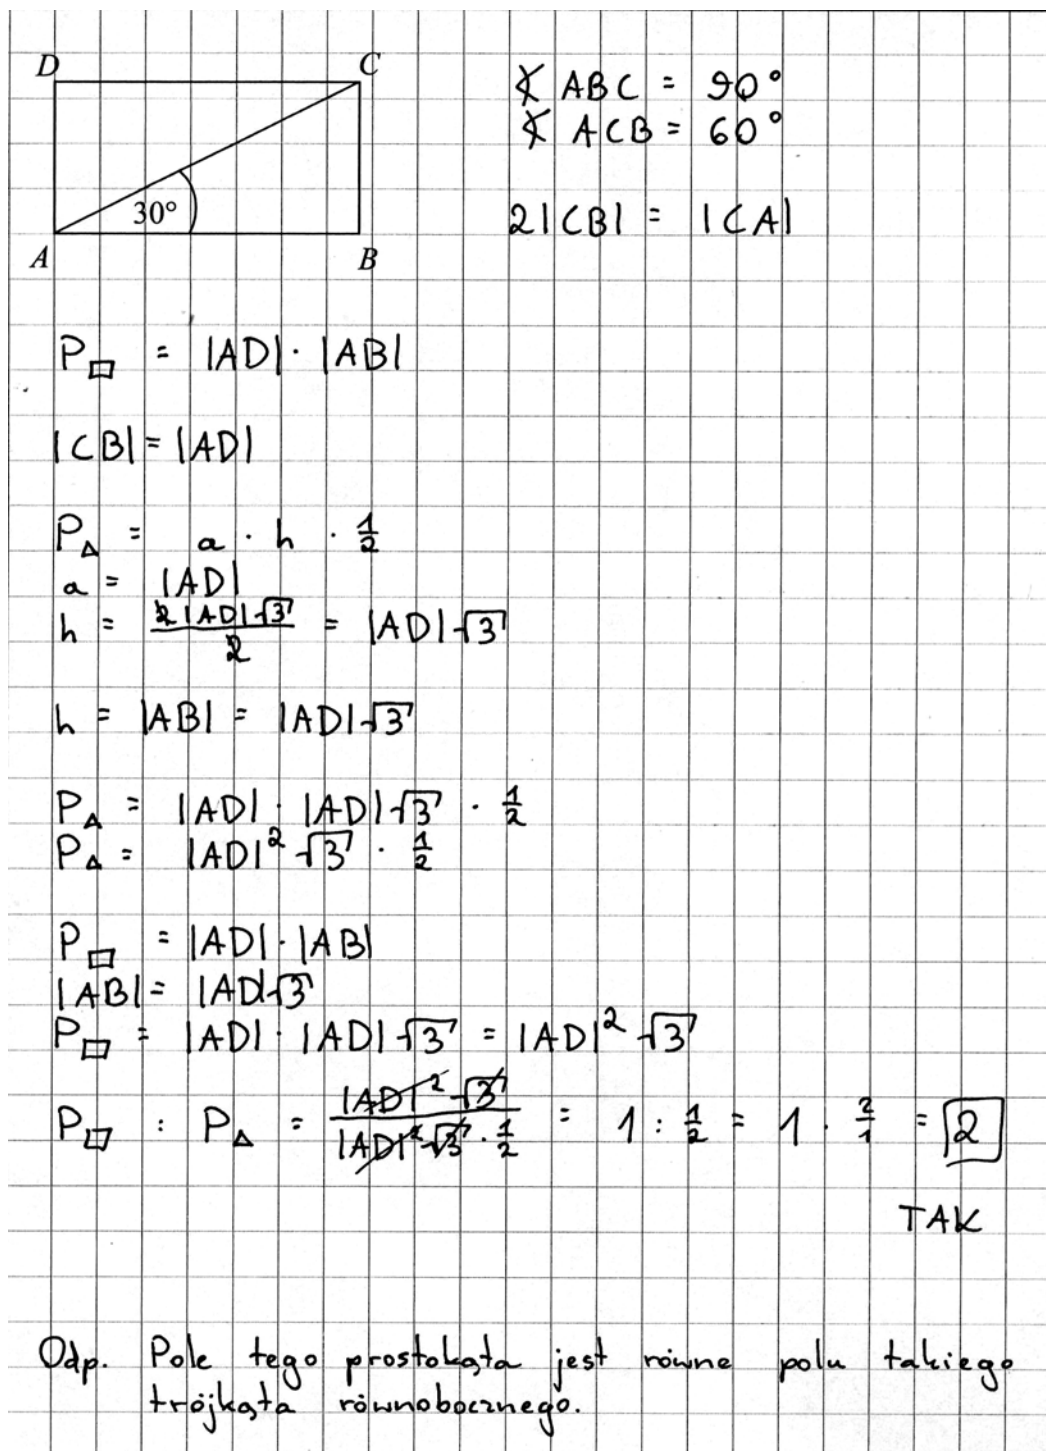 D C
∢ ABC = 90°
∢ ACB = 60°
30°
2|CB| = |CA|
A B
P▭ = |AD| · |AB|
|CB| = |AD|
P△ = a · h · 1/2
a = |AD|
h = 2|AD|√3/2 = |AD|√3
h = |AB| = |AD|√3
P△ = |AD| · |AD|√3 · 1/2
P△ = |AD|²√3 · 1/2
P▭ = |AD| · |AB|
|AB| = |AD|√3
P▭ = |AD| · |AD|√3 = |AD|²√3
P▭ : P△ = |AD|²√3/|AD|²√3 · 1/2 = 1 : 1/2 = 1 · 2/1 = 2
TAK
Odp. Pole tego prostokąta jest równe polu takiego
trójkąta równobocznego.